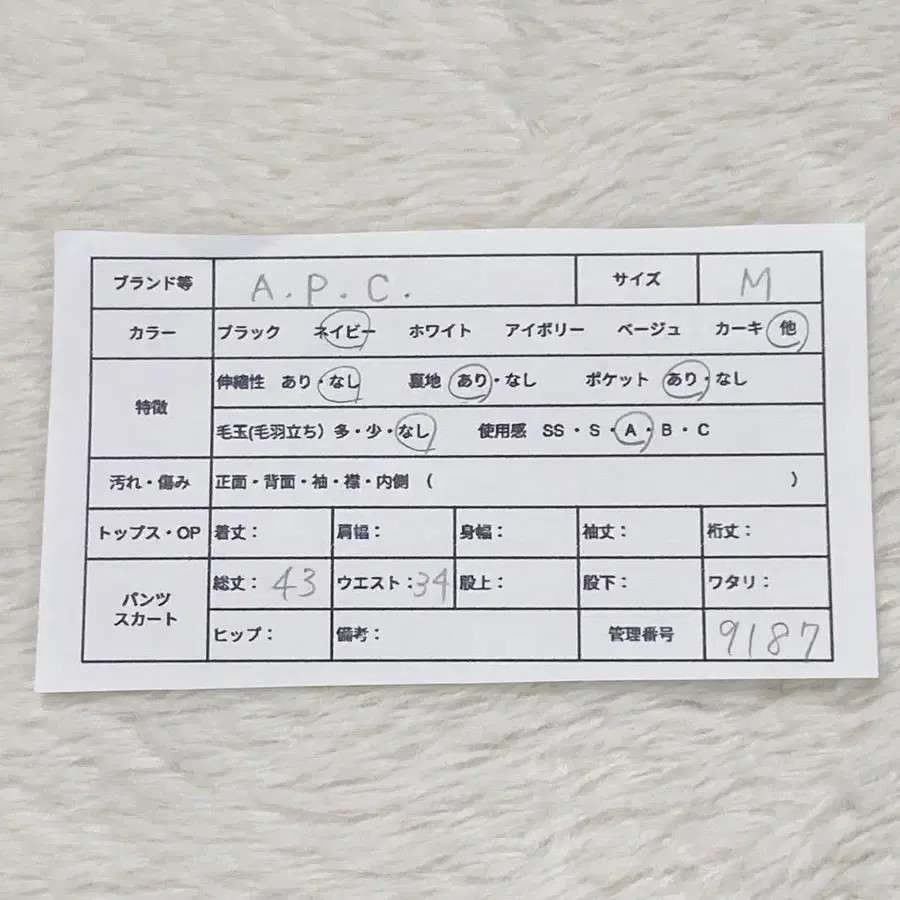 ブランド等 A.P.C. サイズ M
カラー ブラック ネイビー ホワイト アイボリー ベージュ カーキ 他
特徴 伸縮性 あり・なし 裏地 あり・なし ポケット あり・なし
毛玉(毛羽立ち) 多・少・なし 使用感 SS・S・A・B・C
汚れ・傷み 正面・背面・袖・襟・内側 ( )
トップス・OP 着丈: 肩幅: 身幅: 袖丈: 裄丈:
パンツ スカート 総丈: 43 ウエスト: 34 股上: 股下: ワタリ:
ヒップ: 備考: 管理番号 9187